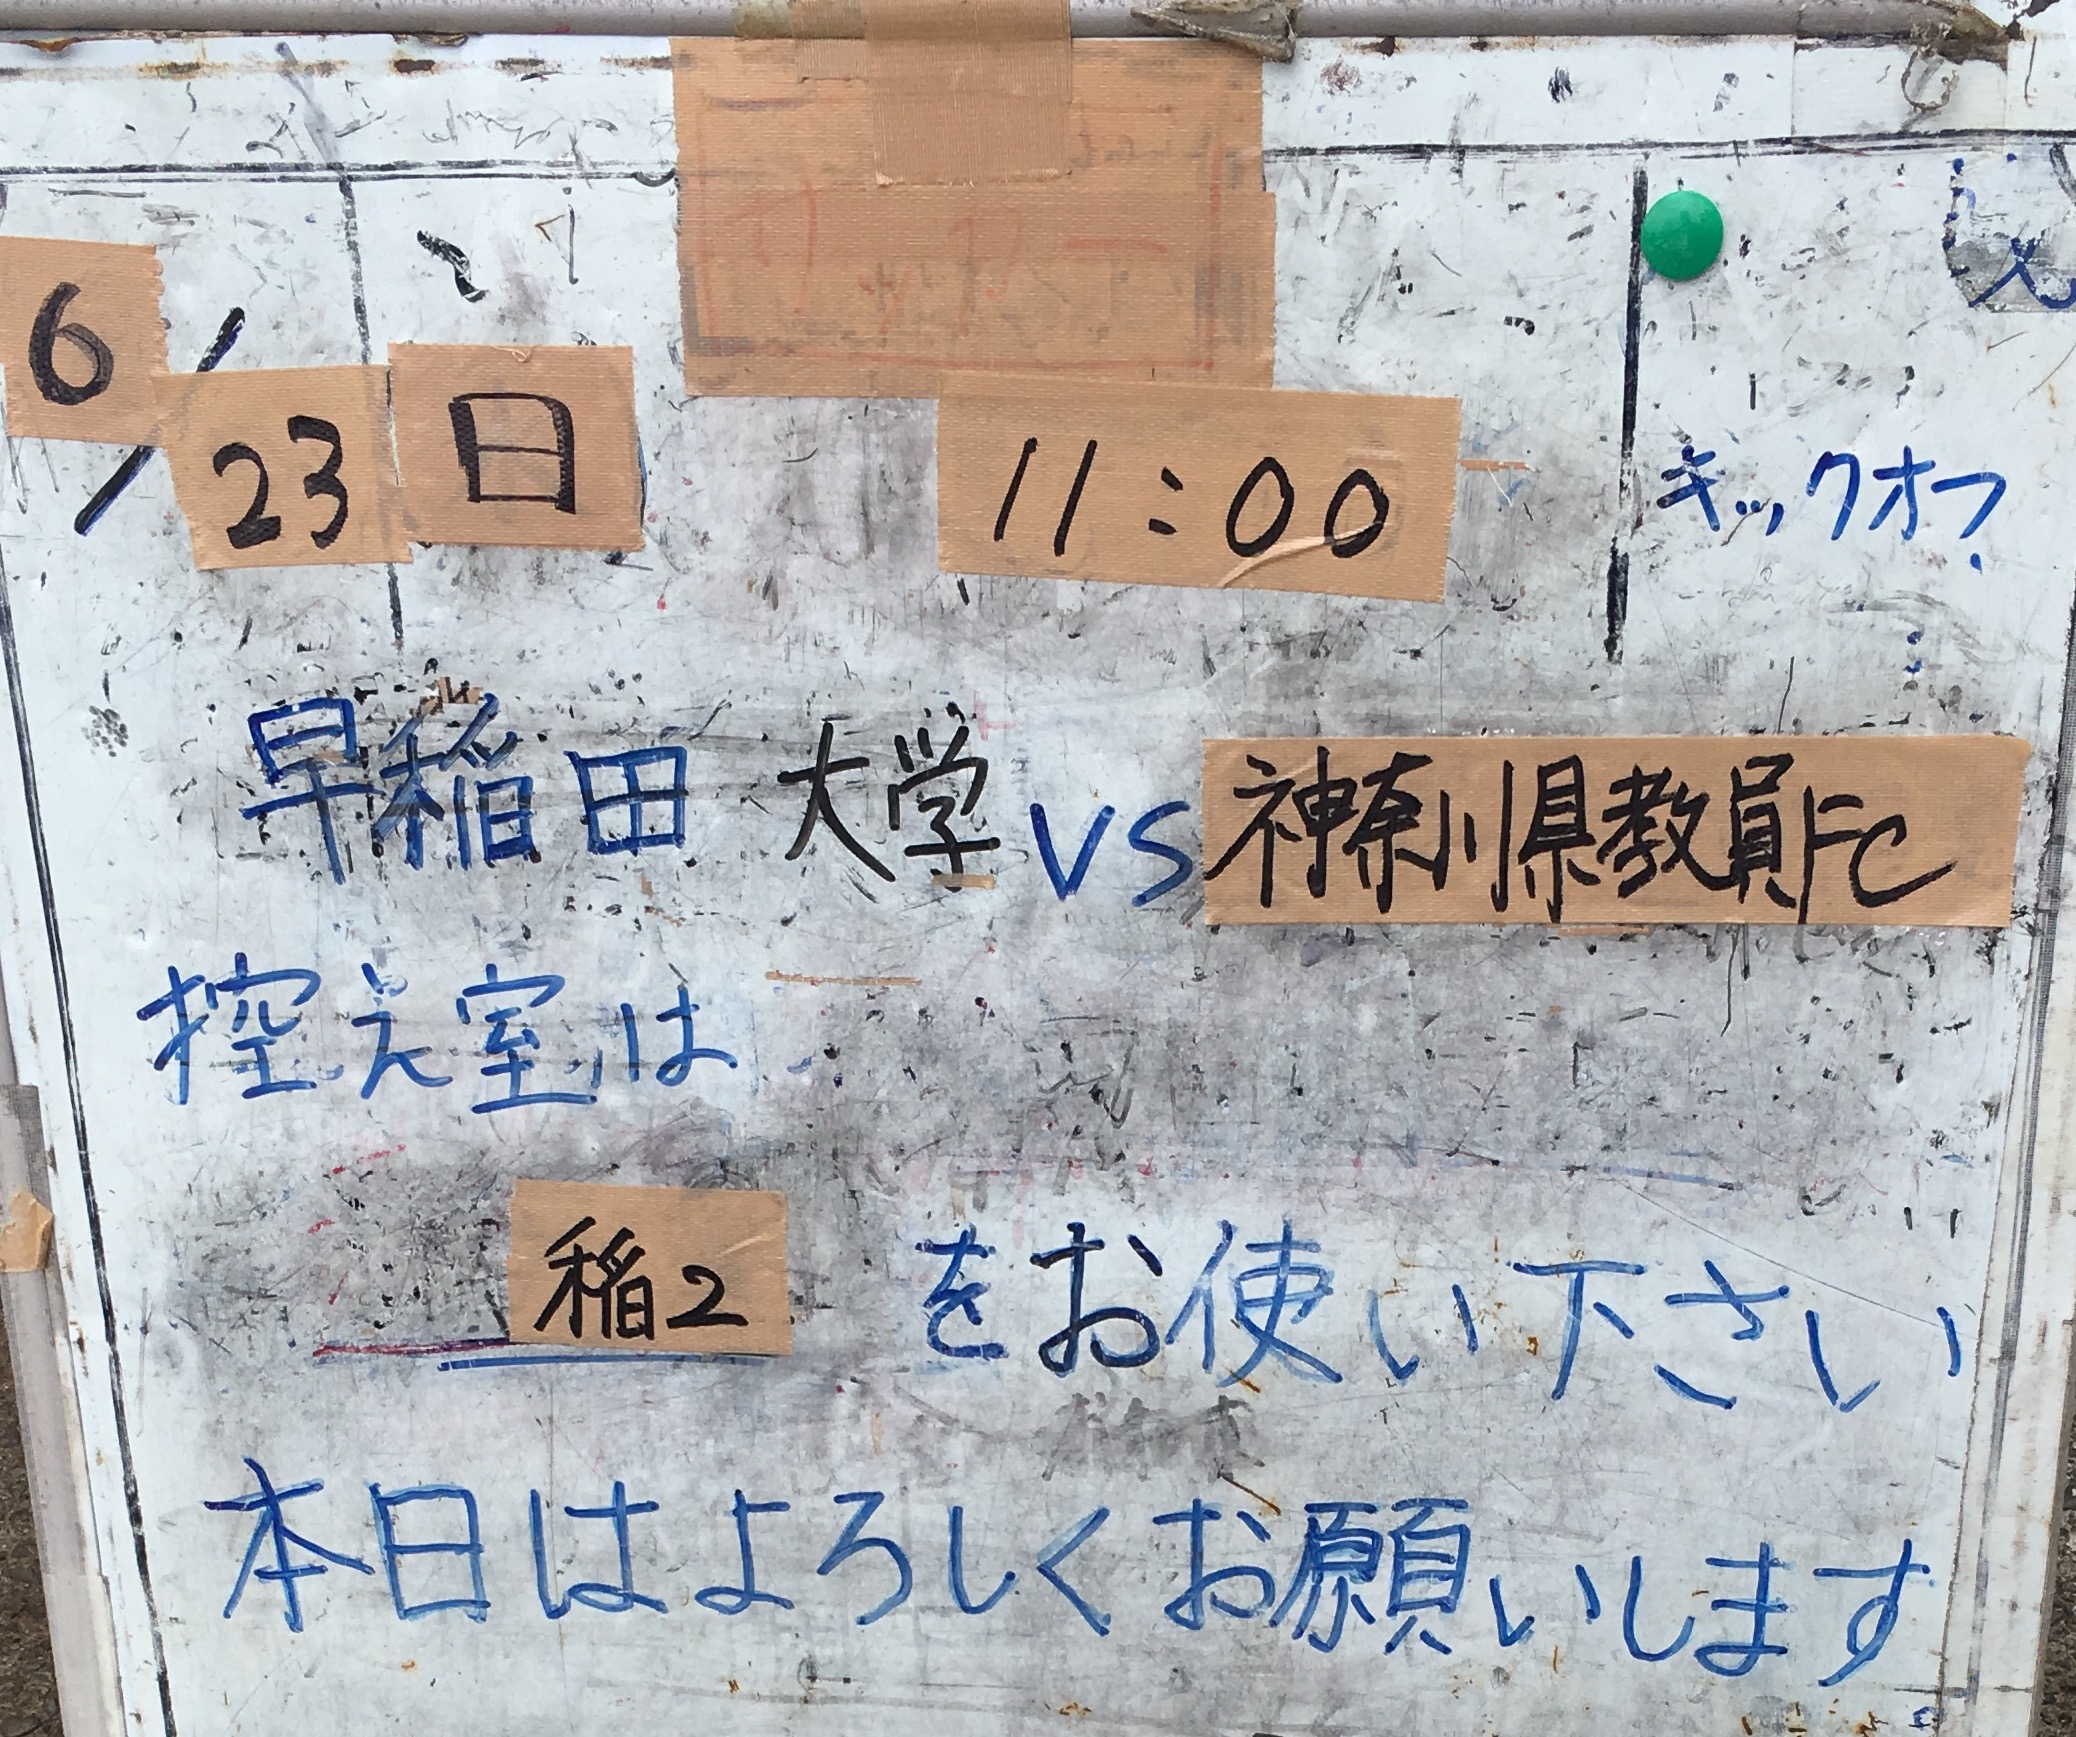 6/23 日 11:00 キックオフ
早稲田大学 VS 神奈川県教員FC
控え室は
稲2 をお使い下さい
本日はよろしくお願いします